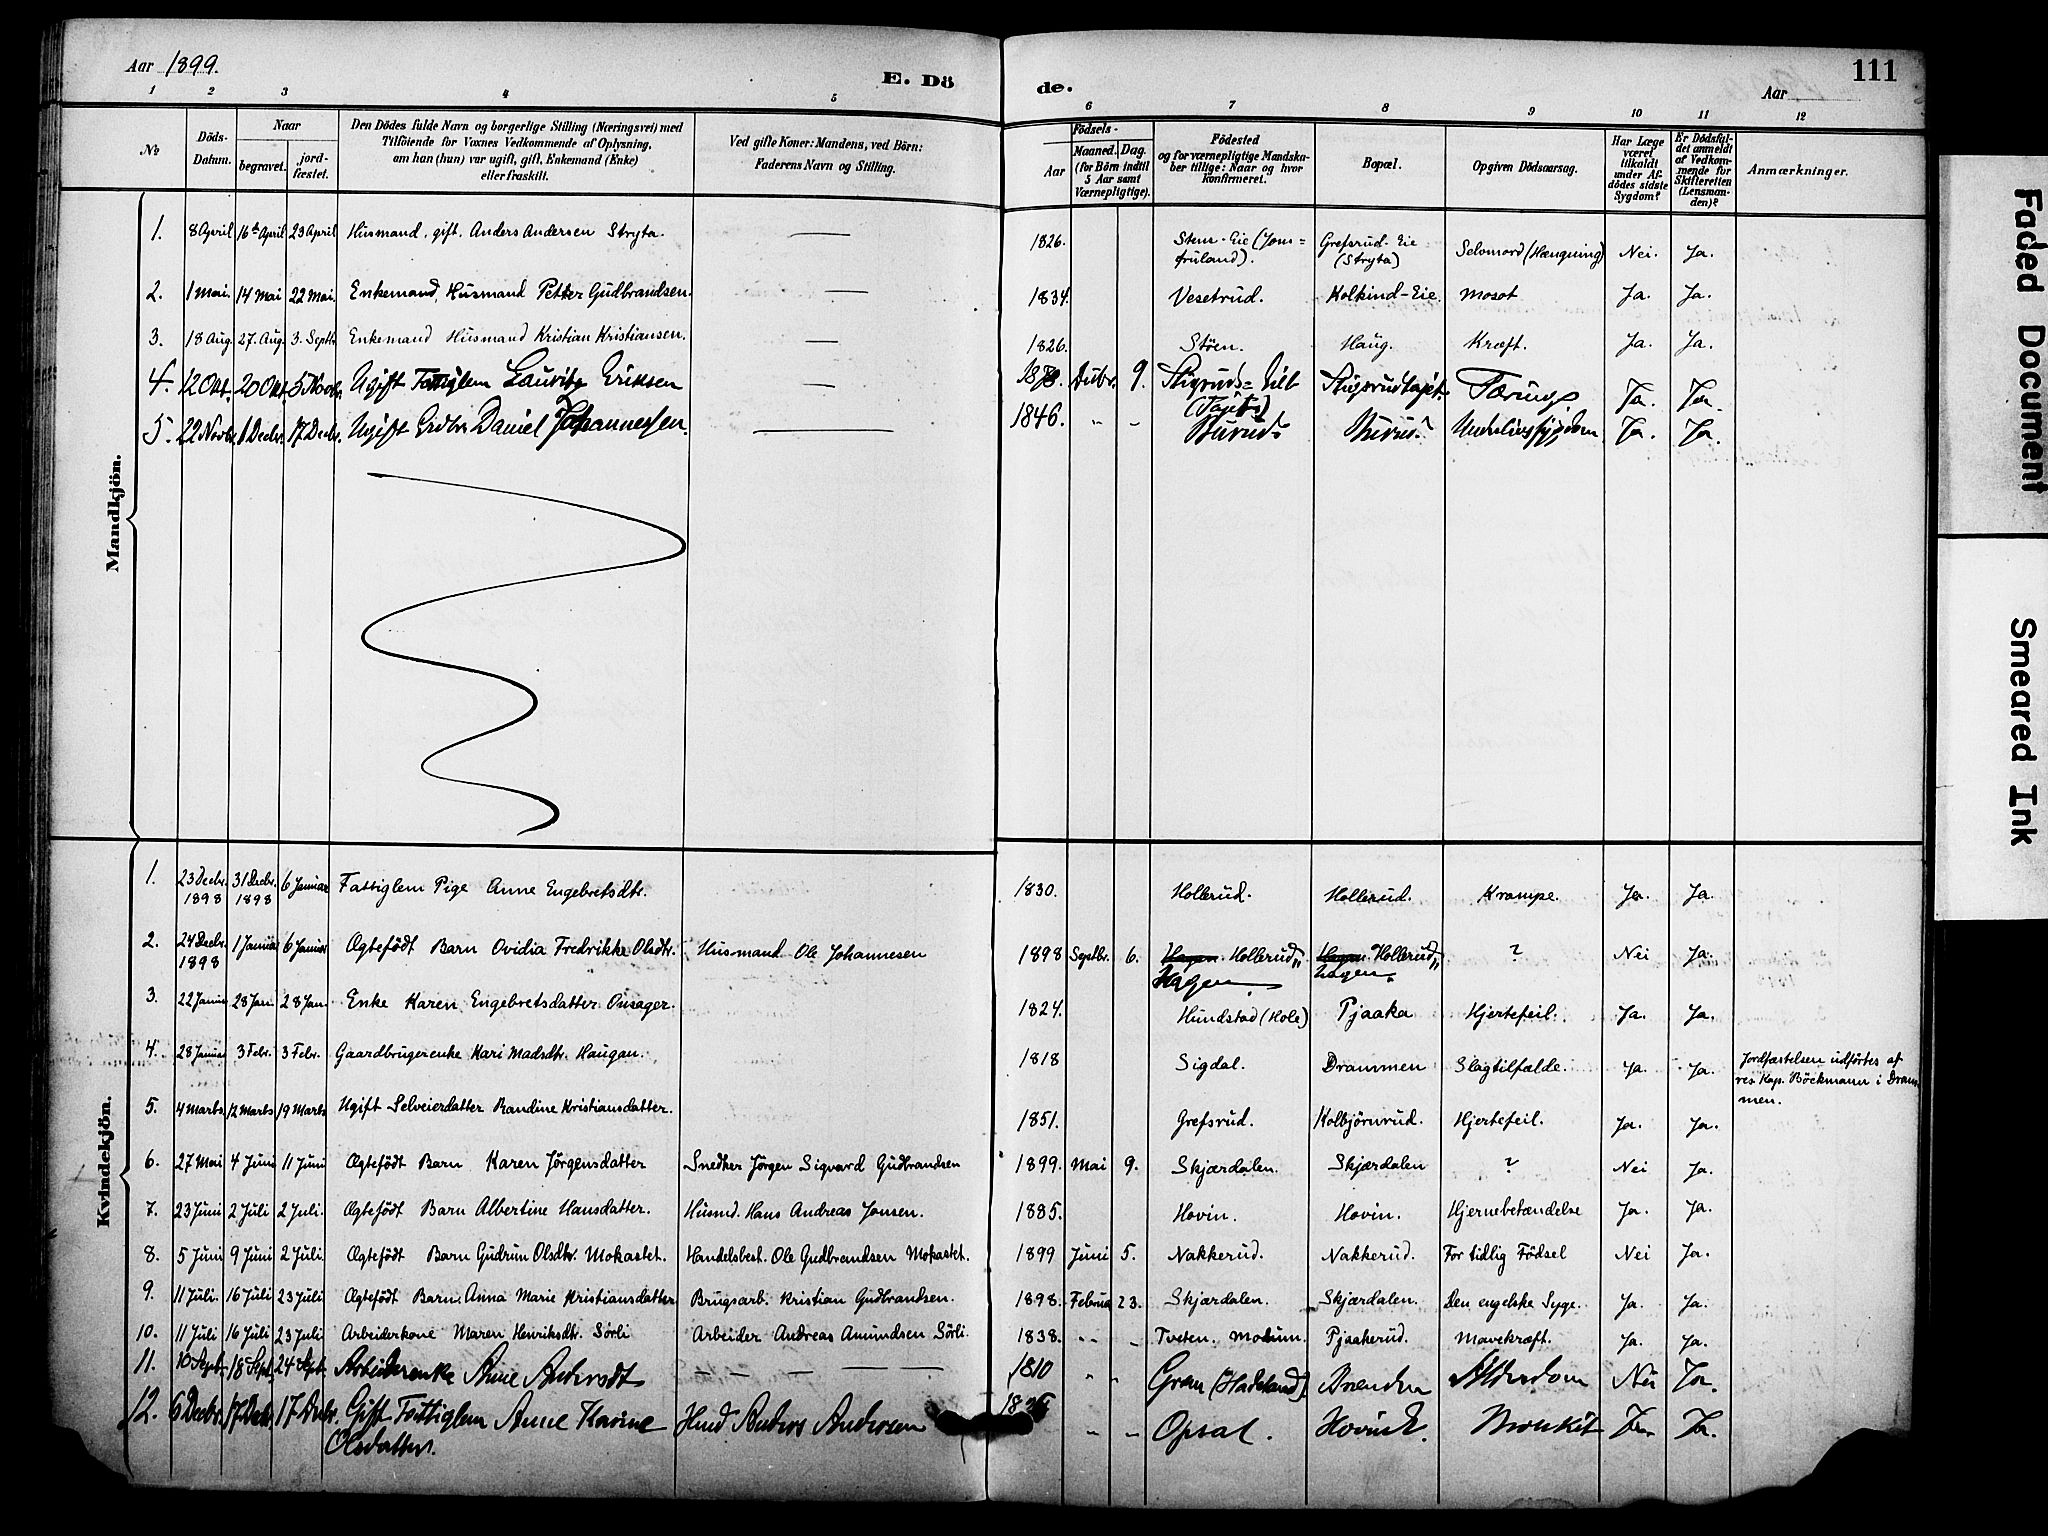 Aar 1899.
E. Dö
de.
Aar
111
1 2 3 4 5 6 7 8 9 10 11 12
№
Döds-
Datum.
Naar
begravet.
jord-
fæstet.
Den Dödes fulde Navn og borgerlige Stilling (Næringsvei) med
Tilföiende for Voxnes Vedkommende af Oplysning,
om han (hun) var ugift, gift, Enkemand (Enke)
eller fraskilt.
Ved gifte Koner: Mandens, ved Börn:
Faderens Navn og Stilling.
Födsels-
Aar
Maaned.
Dag.
(for Börn indtil
5 Aar samt
Værnepligtige).
Födested
og for værnepligtige Mandska-
ber tillige: Naar og hvor
konfirmeret.
Bopæl.
Opgiven Dödsaarsag.
Har Læge
været
tilkaldt
under Af-
dödes sidste
Sygdom?
Er Dödsfal-
det anmeldt
af Vedkom-
mende for
Skifteretten
(Lensman-
den)?
Anmærkninger.
Mandkjön.
1. 8 April 16de April 23 April Husmand, gift, Anders Andersen Stryta. — 1826. Stens-Eie (Jom= Grefsrud-Eie Selvmord (Hængning) Nei. Ja.
fruland). (Stryta)
2. 1 Mai. 14 Mai 22 Mai. Enkemand, Husmand Petter Gudbrandsen. — 1834. Vesetrud. Kolkind-Eie. Mosot Ja. Ja.
3. 18 Aug. 27. Aug. 3. Septb. Enkemand Husmand Kristian Kristiansen. — 1826. Støen. Haug. Kræft. Ja. Ja.
4. 12 Okt. 20 Okt. 5 Novbr. Ugift Fattiglem Lauritz Eriksen — Decbr. 9. Tæring Ja. Ja.
5. 22 Novbr. 1 Decbr. 17 Decbr. Ugift Daniel Johannessen. — 1846. „ „ Burud Burud Underlivssygdom Ja. Ja.
Kvindekjön.
1. 23 Decbr. 31 Decbr. 6 Januar Fattiglem Pige Anne Engebretsdtr. 1830. Hollerud. Hollerud. Krampe. Ja. Ja.
1898 1898
2. 24 Decbr. 1 Januar 6 Januar Ægtefödt Barn Ovidia Fredrikke Olsdtr. Husmand Ole Johannesen 1898 Septbr. 6. Hagen. Hollerud„ Hagen. Hollerud„ ? Nei Ja.
1898 Hagen. Hagen.
3. 22 Januar 28 Jan. 28 Jan. Enke Karen Engebretsdatter Onsager. 1824. Hundstad (Hole) Pjaaka Hjertefeil. Ja. Ja.
4. 28 Januar 3 Febr. 3 Febr. Gaardbrugerenke Kari Madsdtr. Haugan. 1818 Sigdal. Drammen Slagtilfælde. Ja. Ja. Jordfæstelsen udførtes af
res. Kap. Böckmann i Dram-
men.
5. 4 Marts 12 Marts 19 Marts Ugift Selveierdatter Randine Kristiansdatter. 1851. Grefsrud. Kolbjörnrud. Hjertefeil. Ja. Ja.
6. 27 Mai 4 Juni 11 Juni Ægtefödt Barn Karen Jörgensdatter Snedker Jörgen Sigvard Gudbrandsen 1899. Mai 9. Skjærdalen. Skjærdalen ? Nei Ja.
7. 23 Juni 2 Juli 2 Juli. Ægtefödt Barn Albertine Hansdatter. Husmd. Hans Andreas Jonsen. 1885. Hovin. Hovin. Hjernebetændelse Ja. Ja.
8. 5 Juni 9 Juni 2 Juli. Ægtefödt Barn Gudrun Olsdtr. Mokastet. Handelsbest. Ole Gudbrandsen Mokastet. 1899 Juni 5. Nakkerud. Nakkerud. For tidlig Födsel Nei Ja.
9. 11 Juli. 16 Juli 23 Juli Ægtefödt Barn Anna Marie Kristiansdatter Brugsarb. Kristian Gudbrandsen. 1898. Februar 23. Skjærdalen. Skjærdalen. Den engelske Syge. Ja. Ja.
10. 11 Juli 16 Juli 23 Juli Arbeiderkone Maren Henriksdtr. Sörli Arbeider Andreas Amundsen Sörli. 1838. „ „ Tveten. Modum. Pjaakerud. Mavekræft. Ja. Ja.
11. 10 Sept. 18 Sept. 24 Sept. Arbeiderenke Anne Andersdt — — — — 1810 „ „ Gran (Hadeland) Brenden Alderdom Nei Ja.
12. 6 Decbr. 17 Decbr. 17 Decbr. Gift Fattiglem Anne Karine Husmd Anders Andersen „ „ Opsal. Ja. Ja.
Olsdatter.
Faded Document
Smeared Ink